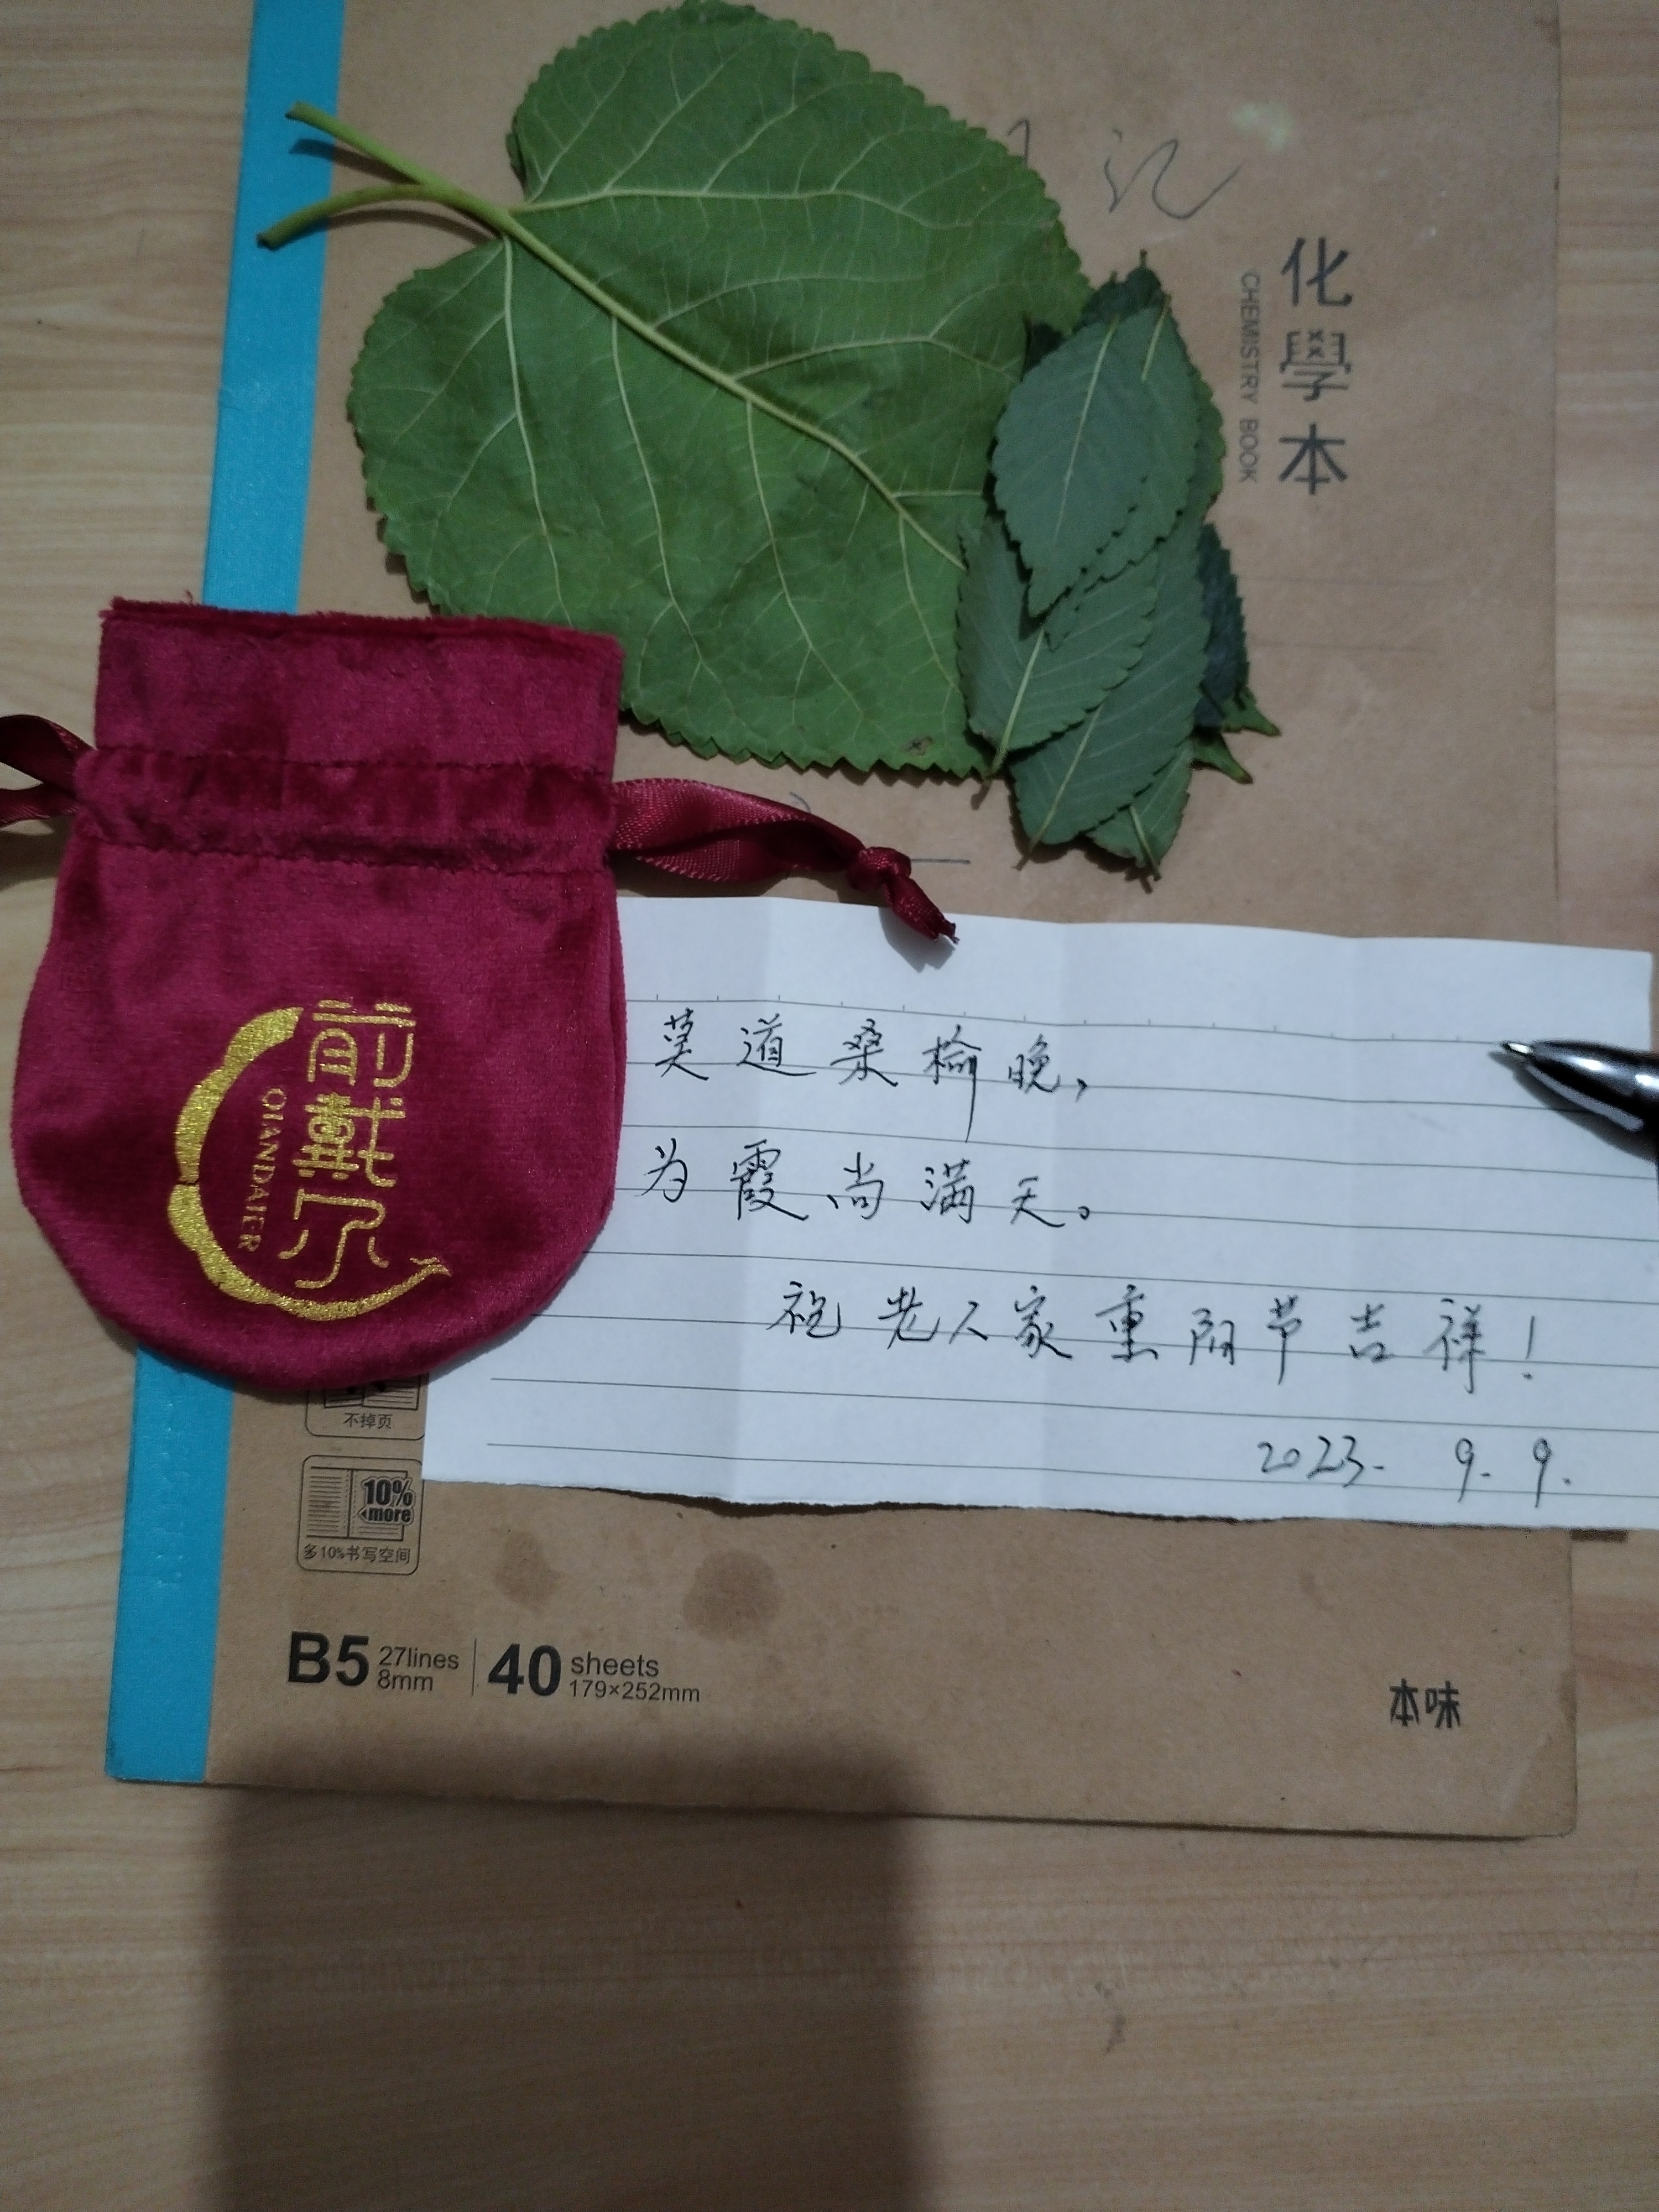 记
化學本
CHEMISTRY BOOK
前戴尔
QIANDAIER
莫道桑榆晚，
为霞尚满天。
祝老人家重阳节吉祥！
2023. 9. 9.
不掉页
10%
more
多10%书写空间
B5 27lines 8mm 40 sheets 179×252mm
本味